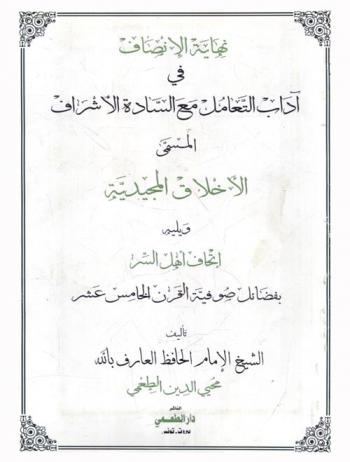 نهاية الإنصاف
في
آداب التعامل مع السادة الأشراف
المسمى
الأخلاق المجيدية
ويليه
إتحاف أهل السر
بفضائل صوفية القرن الخامس عشر
تأليف
الشيخ الإمام الحافظ العارف بالله
محيي الدين الطعمي
الناشر
دار الطعمي